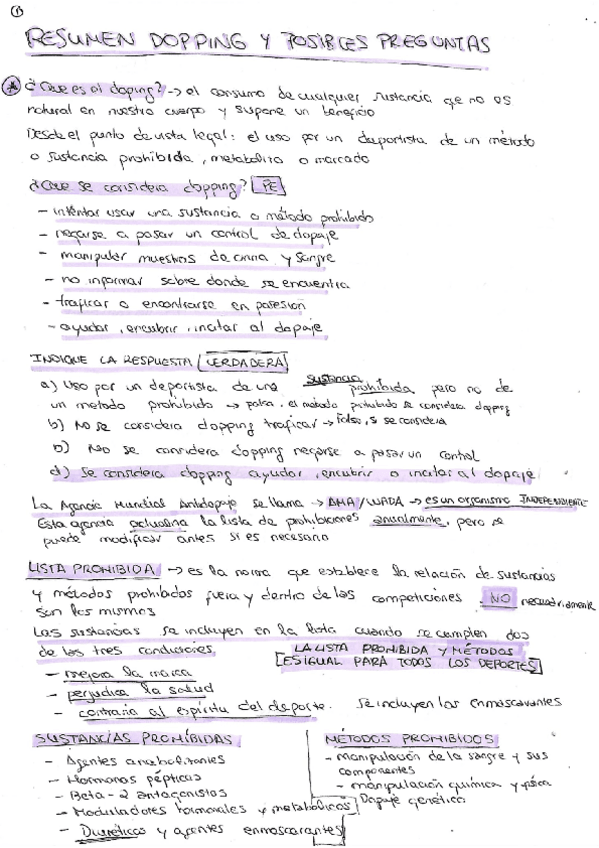 ①
RESUMEN DOPPING Y POSIBLES PREGUNTAS
¿Que es el doping? -> el consumo de cualquier sustancia que no es
natural en nuestro cuerpo y supone un beneficio
Desde el punto de vista legal: el uso por un deportista de un método
o sustancia prohibida, metabolito o marcado
¿Que se considera dopping? PE
- intentar usar una sustancia o método prohibido
- negarse a pasar un control de dopaje
- manipular muestras de orina y sangre
- no informar sobre donde se encuentra
- traficar o encontrarse en posesión
- ayudar, encubrir, incitar al dopaje
INDIQUE LA RESPUESTA VERDADERA
a) Uso por un deportista de una sustancia prohibida pero no de
un metodo prohibido -> falsa, el método prohibido se considera dopping
b) No se considera dopping traficar -> Falso, si se considera
b) No se considera dopping negarse a pasar un control
d) Se considera dopping ayudar, encubrir o incitar al dopaje
La Agencia Mundial Antidopaje se llama -> AMA/WADA -> es un organismo INDEPENDIENTE
Esta agencia actualiza la lista de prohibiciones anualmente, pero se
puede modificar antes si es necesario
LISTA PROHIBIDA -> es la norma que establece la relación de sustancias
y métodos prohibidos fuera y dentro de las competiciones. NO necesariamente
son los mismos
Las sustancias se incluyen en la lista cuando se cumplen dos
de las tres condiciones. LA LISTA PROHIBIDA Y MÉTODOS
ES IGUAL PARA TODOS LOS DEPORTES
- mejora la marca
- perjudica la salud
- contraria al espíritu del deporte. Se incluyen los enmascarantes
SUSTANCIAS PROHIBIDAS
- Agentes anabolizantes
- Hormonas pépticas
- Beta-2 antagonistas
- Moduladores hormonales y metabólicos
- Diuréticos y agentes enmascarantes
MÉTODOS PROHIBIDOS
- Manipulación de la sangre y sus
componentes
- manipulación química y física
Dopaje genético